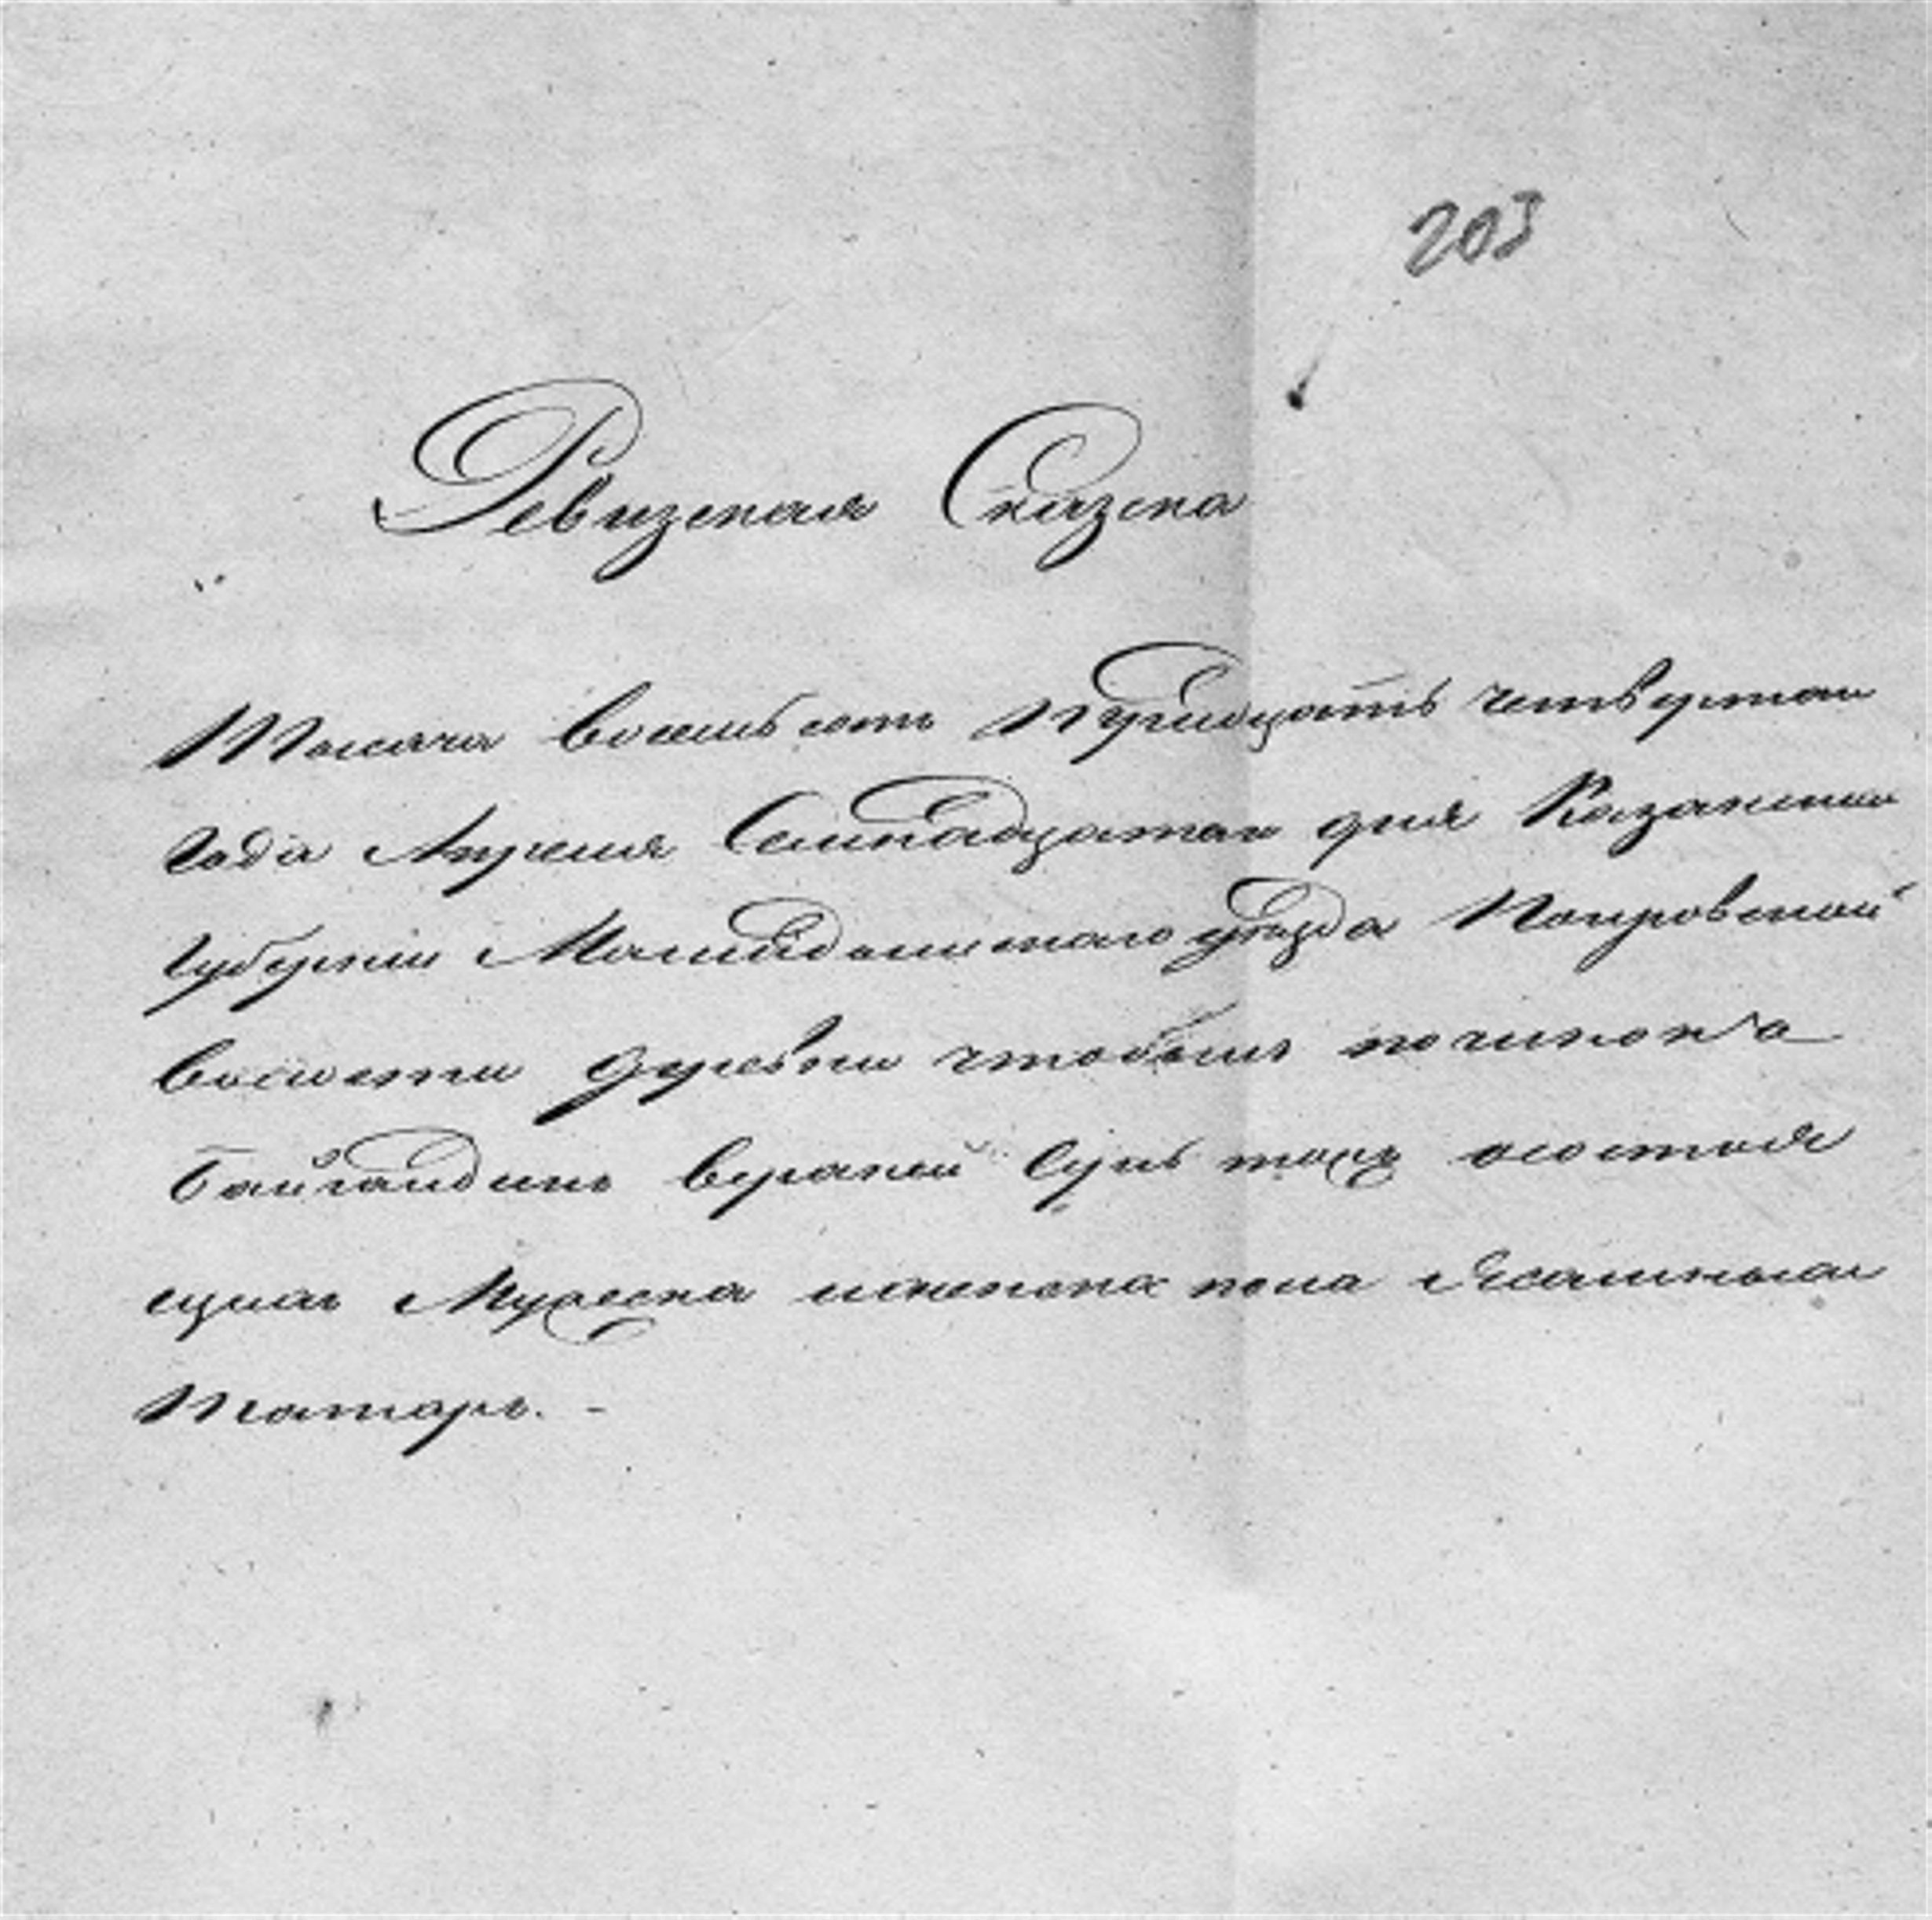 203
Ревизская Сказска
Тысяча восемь сотъ Тридцать четвертаго
года Апреля Семнадцатаго дня Казанской
Губернии Мамадышскаго уѣзда Покровской
волости деревни чтобылъ починокъ
Байгандинъ верхней Сунь тожъ осостоя
щихъ Мужеска иженска пола Ясашныхъ
Татаръ. -